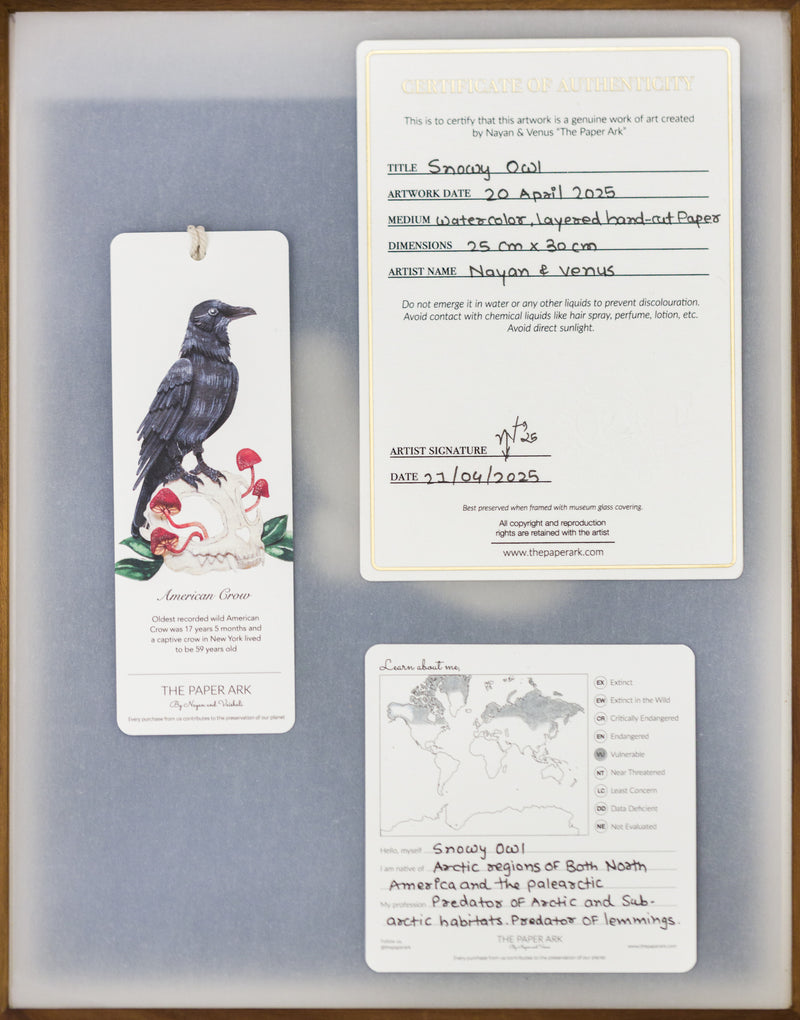 CERTIFICATE OF AUTHENTICITY
This is to certify that this artwork is a genuine work of art created
by Nayan & Venus "The Paper Ark"
TITLE Snowy Owl
ARTWORK DATE 20 April 2025
MEDIUM Watercolor, layered hand-cut Paper
DIMENSIONS 25 cm x 30 cm
ARTIST NAME Nayan & Venus
Do not emerge it in water or any other liquids to prevent discolouration.
Avoid contact with chemical liquids like hair spray, perfume, lotion, etc.
Avoid direct sunlight.
ARTIST SIGNATURE
DATE 21/04/2025
Best preserved when framed with museum glass covering.
All copyright and reproduction
rights are retained with the artist
www.thepaperark.com
American Crow
Oldest recorded wild American
Crow was 17 years 5 months and
a captive crow in New York lived
to be 59 years old
THE PAPER ARK
By Nayan and Vaishali
Every purchase from us contributes to the preservation of our planet
Learn about me,
EX Extinct
EW Extinct in the Wild
CR Critically Endangered
EN Endangered
VU Vulnerable
NT Near Threatened
LC Least Concern
DD Data Deficient
NE Not Evaluated
Hello, myself Snowy Owl
I am native of Arctic regions of Both North
America and the palearctic
My profession Predator of Arctic and Sub-
arctic habitats. Predator of lemmings.
Follow us
@thepaperark
THE PAPER ARK
By Nayan and Venus
www.thepaperark.com
Every purchase from us contributes to the preservation of our planet